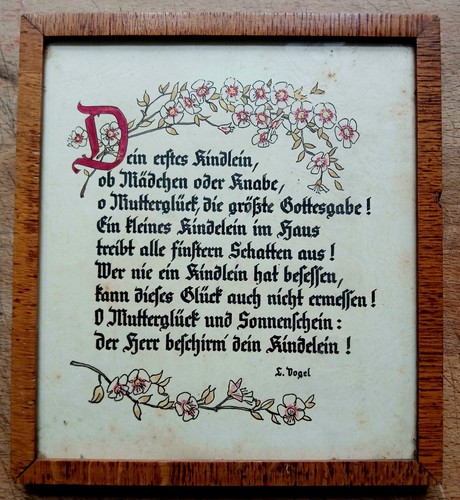 Dein erstes Kindlein,
ob Mädchen oder Knabe,
o Mutterglück, die größte Gottesgabe!
Ein kleines Kindelein im Haus
treibt alle finstern Schatten aus!
Wer nie ein Kindlein hat besessen,
kann dieses Glück auch nicht ermessen!
O Mutterglück und Sonnenschein:
der Herr beschirm' dein Kindelein!
L. Vogel